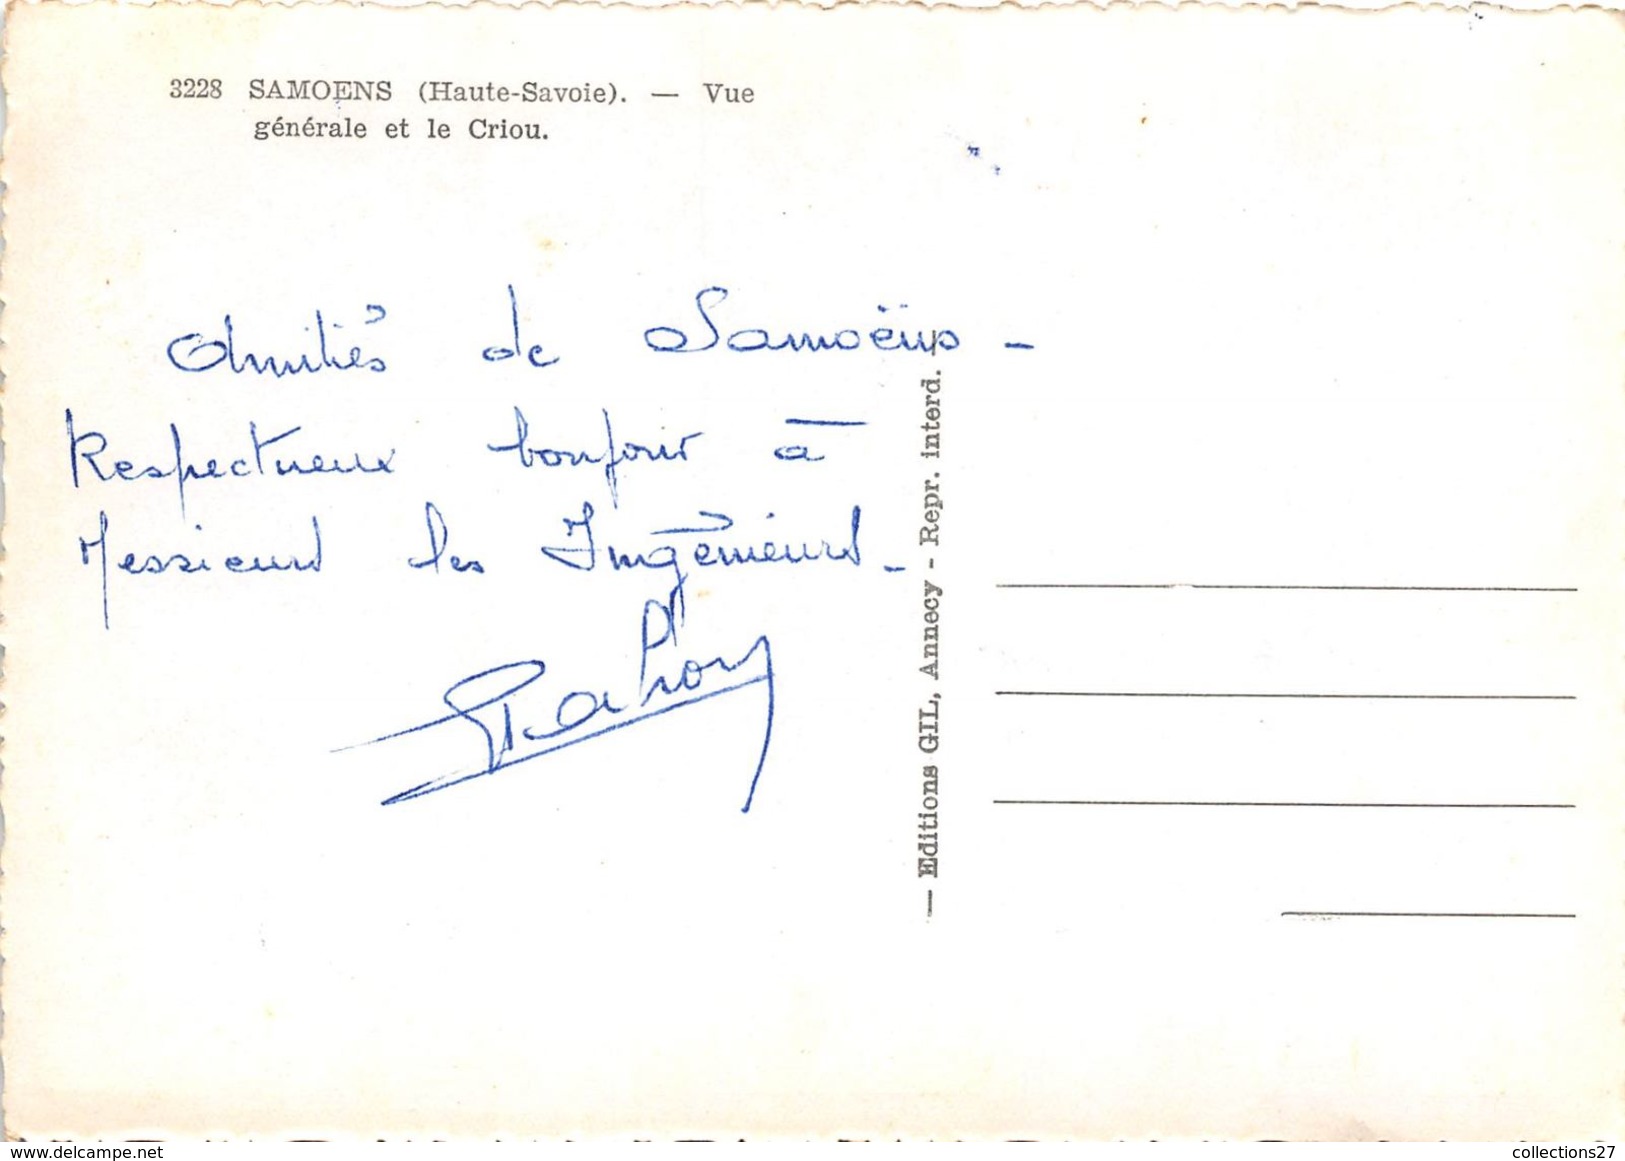 3228 SAMOENS (Haute-Savoie). — Vue
générale et le Criou.
Amitiés de Samoëns -
Respectueux bonjour à
Messieurs les Ingénieurs -
— Editions GIL, Annecy - Repr. interd. —
www.delcampe.net
collections27